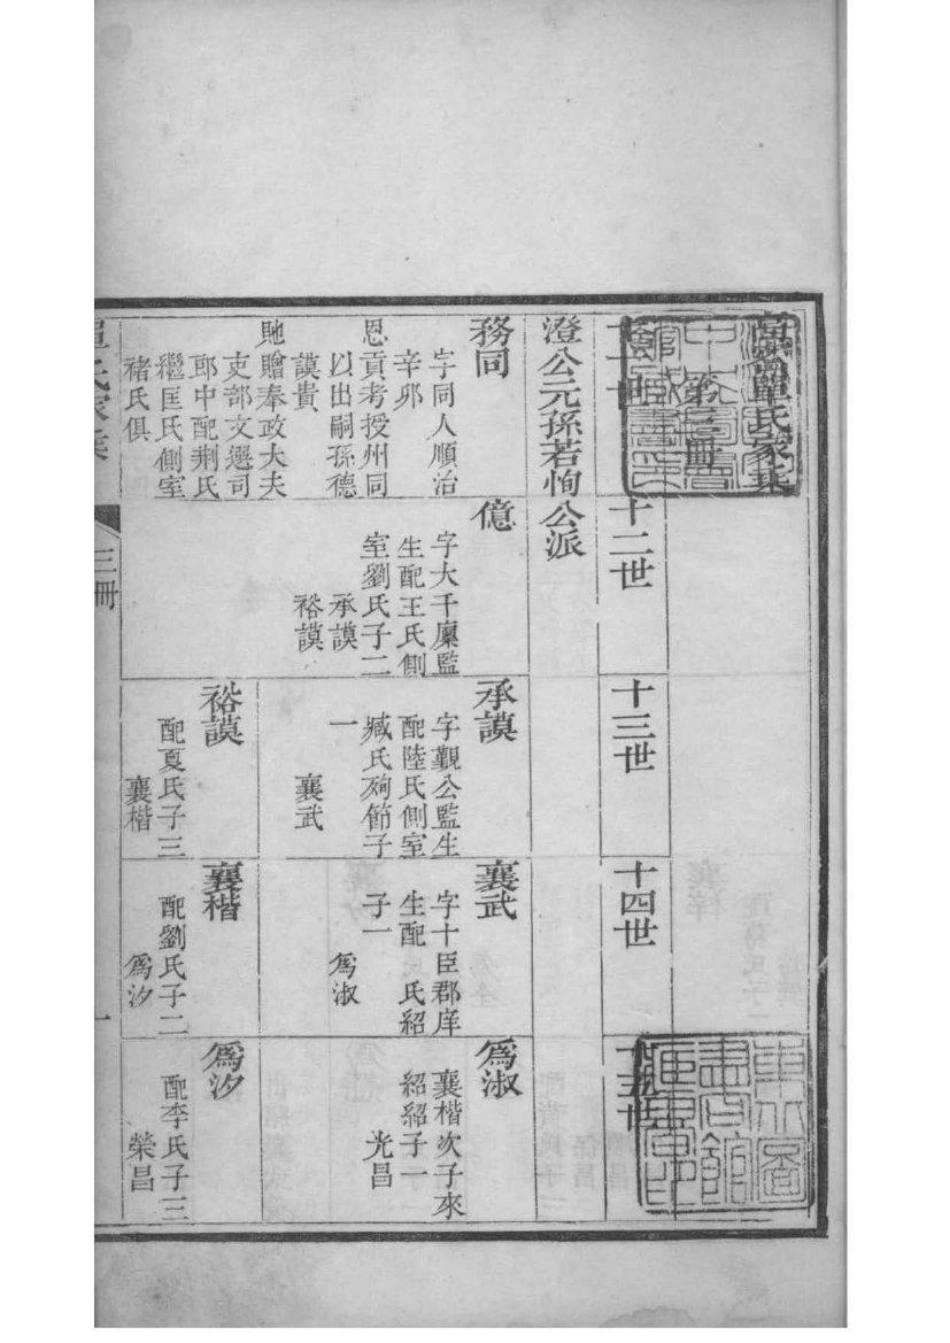 高密單氏家乘
第三冊
十一世
十二世
十三世
十四世
十五世
澄公元孫若恂公派
務同
字同人順治
辛卯
恩貢考授州同
以出嗣孫德
謨貴
貤贈奉政大夫
吏部文選司
郎中配荆氏
繼匡氏側室
褚氏俱
億
字大千廩監
生配王氏側
室劉氏子二
承謨
裕謨
承謨
字觀公監生
配陸氏側室
臧氏殉節子
一
襄武
襄武
字十臣郡庠
生配 氏紹
子一
為淑
為淑
襄楷次子來
紹紹子一
光昌
裕謨
配夏氏子三
襄楷
襄楷
配劉氏子二
為汐
為汐
配李氏子三
榮昌
單氏家乘
三冊
一